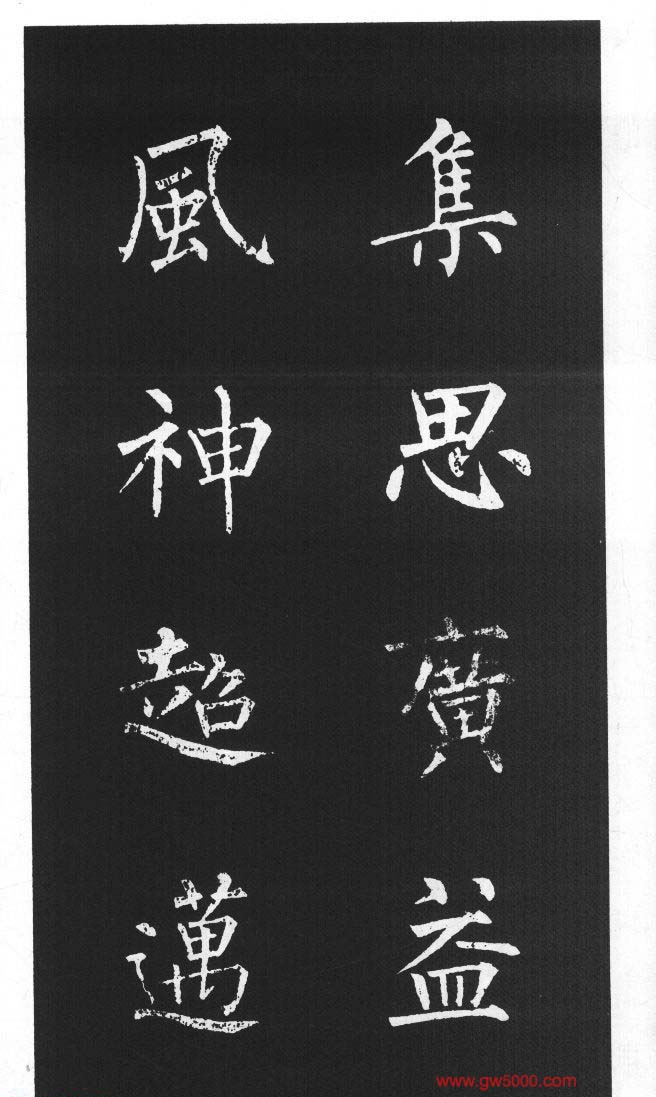 集思廣益
風神超邁
www.gw5000.com